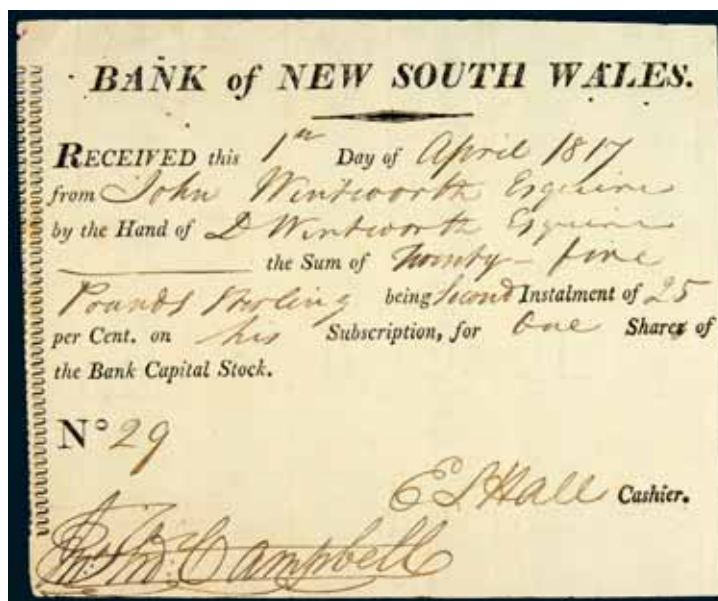 BANK of NEW SOUTH WALES.
RECEIVED this 1st Day of April 1817
from John Wentworth Esquire
by the Hand of D Wentworth Esquire
the Sum of Twenty-five
Pounds Sterling being Second Instalment of 25
per Cent. on his Subscription, for One Shares of
the Bank Capital Stock.
No 29
E S Hall Cashier.
Campbell